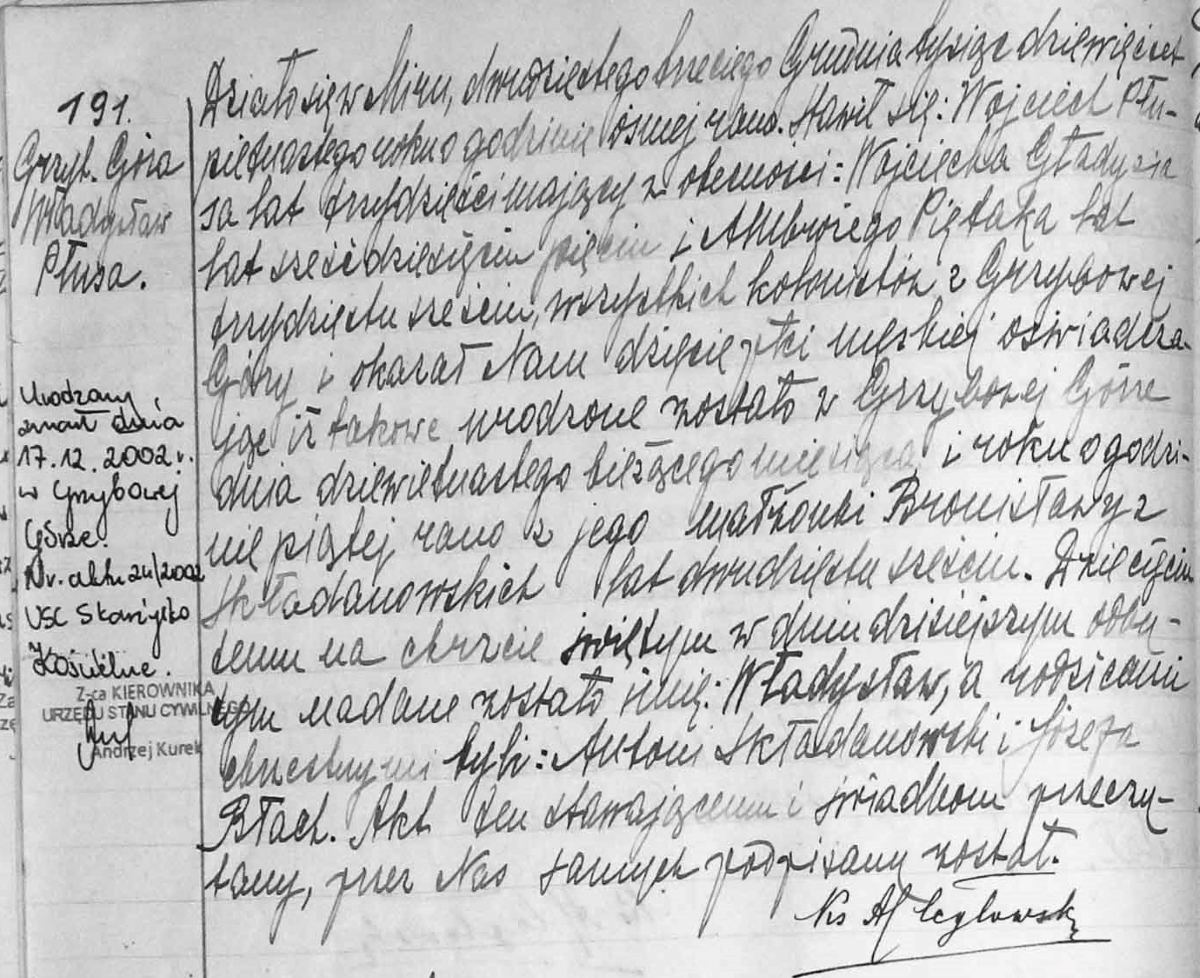 191.
Grzyb. Góra
Władysław
Płusa.
Urodzony
zmarł dnia
17.12.2002 r.
w Grzybowej
Górze.
Nr. aktu 24/2002
USC Skarżysko
Kościelne.
Z-ca KIEROWNIKA
URZĘDU STANU CYWILNEGO
Andrzej Kurek
Działo się w Mircu, dwudziestego trzeciego Grudnia tysiąc dziewięćset
piętnastego roku o godzinie ósmej rano. Stawił się: Wojciech Płu-
sa lat trzydzieści mający w obecności: Wojciecha Gładysia
lat sześćdziesięciu pięciu i Ambrożego Piętaka lat
trzydziestu sześciu, wszystkich kolonistów z Grzybowej
Góry i okazał Nam dziecię płci męskiej oświadcza-
jąc iż takowe urodzone zostało w Grzybowej Górze
dnia dziewiętnastego bieżącego miesiąca i roku o godzi-
nie piątej rano z jego małżonki Bronisławy z
Składanowskich lat dwudziestu sześciu. Dziecięciu
temu na chrzcie świętym w dniu dzisiejszym odby-
tym nadane zostało imię: Władysław, a rodzicami
chrzestnymi byli: Antoni Składanowski i Józefa
Błach. Akt ten stawającemu i świadkom przeczy-
tany, przez Nas samych podpisany został.
Ks